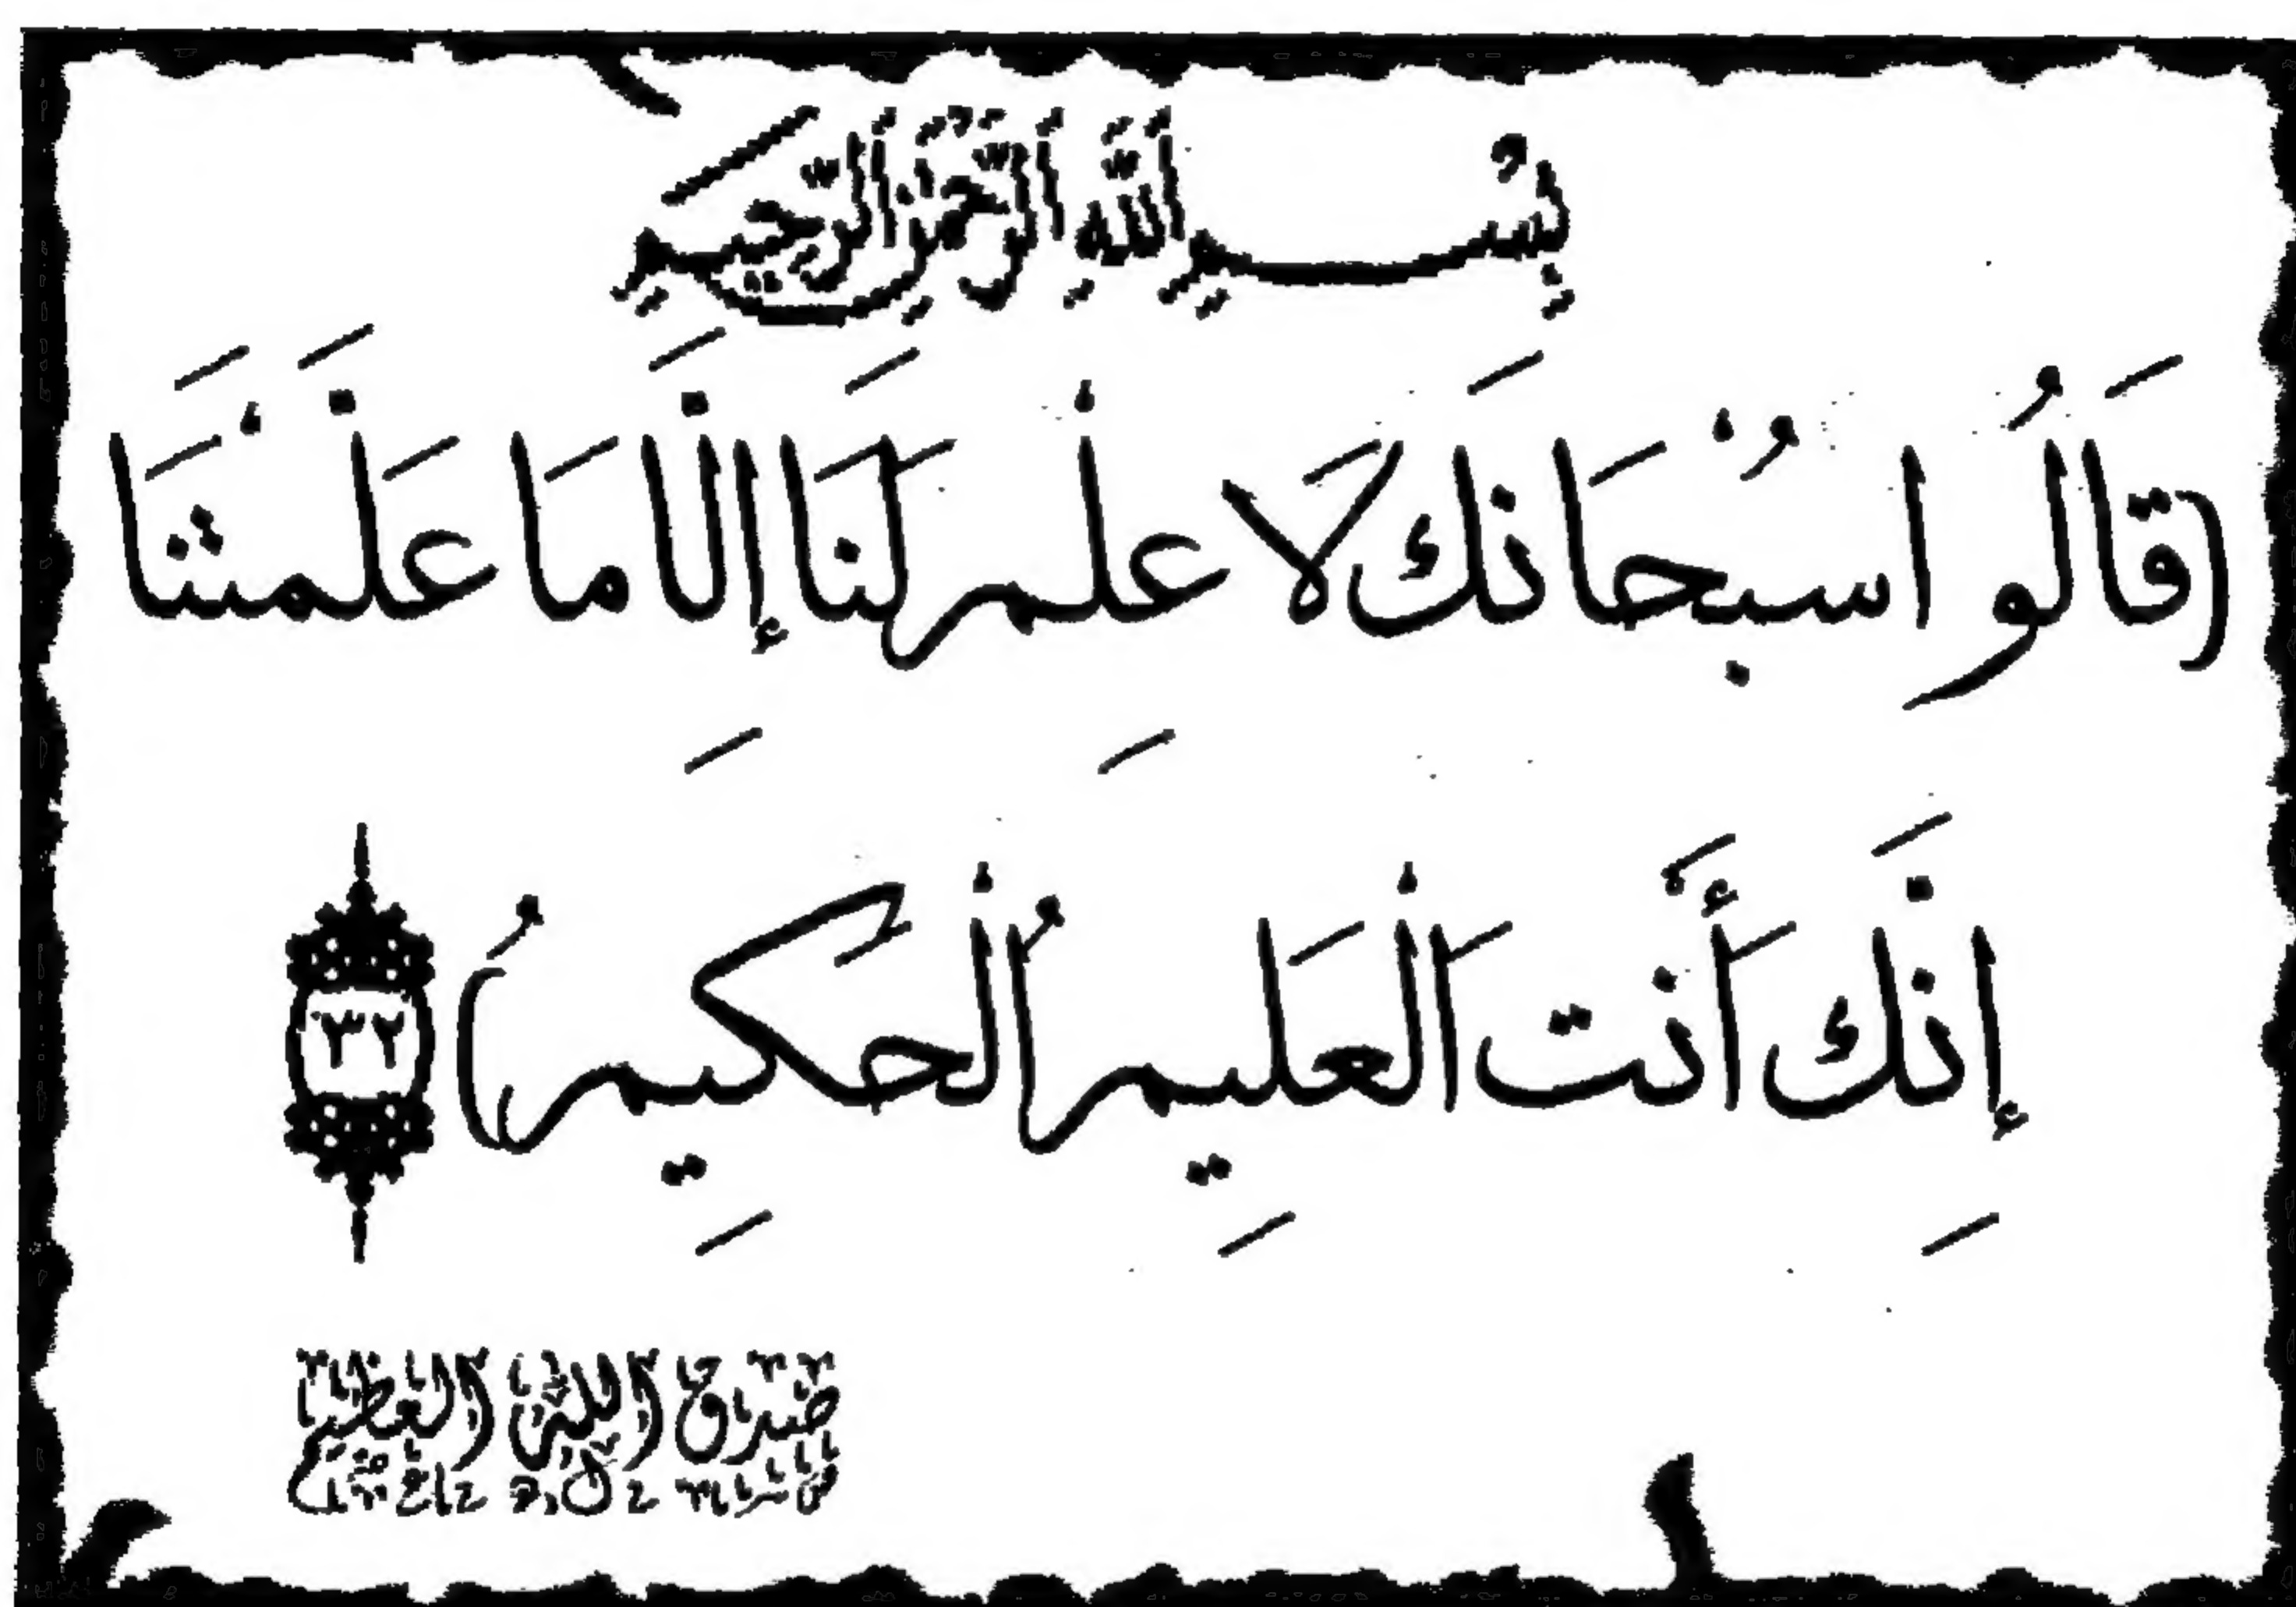 بِسْــــمِ اللَّهِ الرَّحْمَنِ الرَّحِيمِ
(قَالُوا سُبْحَانَكَ لَا عِلْمَ لَنَا إِلَّا مَا عَلَّمْتَنَا
إِنَّكَ أَنْتَ الْعَلِيمُ الْحَكِيمُ) ٣٢
صدق الله العظيم